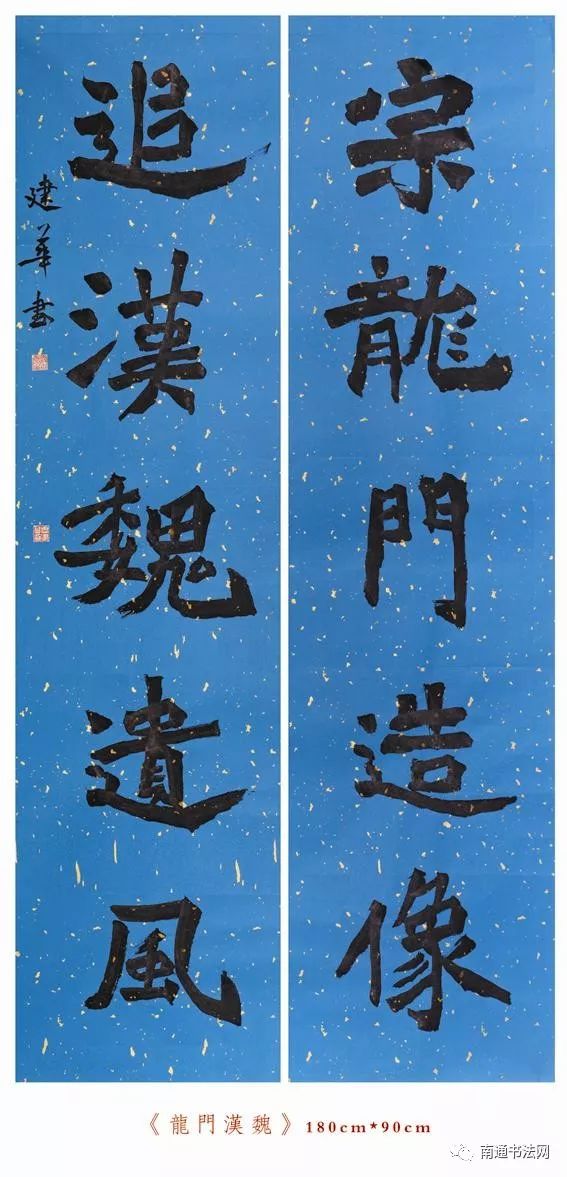 宗龍門造像
追漢魏遺風
建華書
《龍門漢魏》180cm*90cm
南通书法网